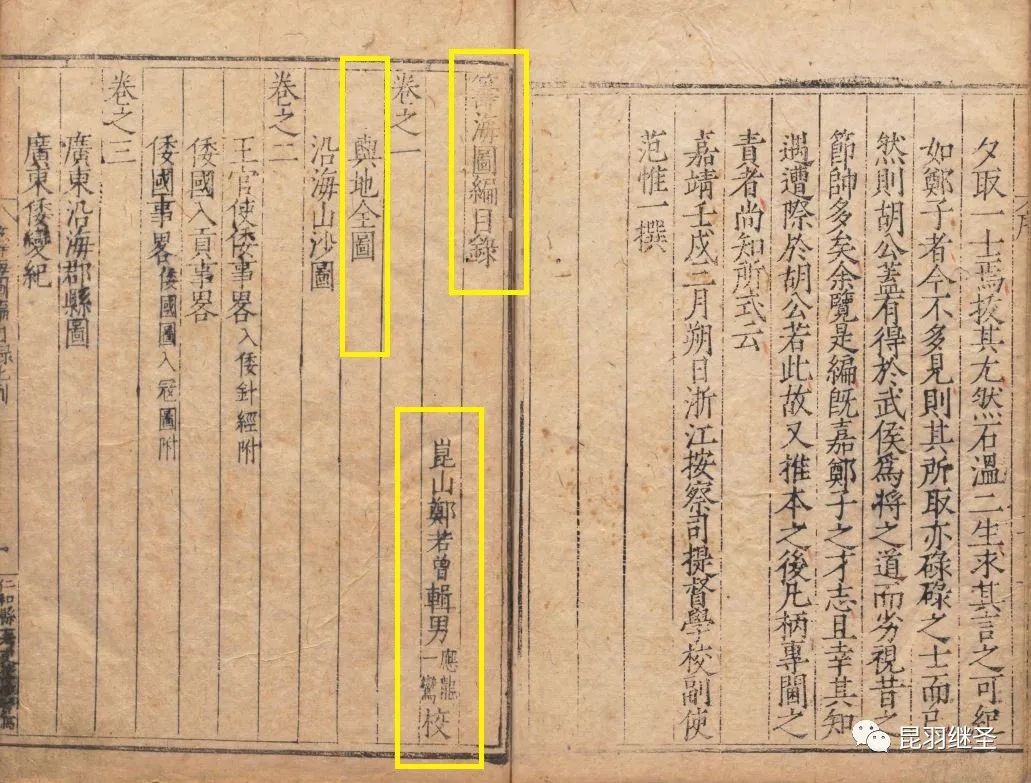 夕取一士焉拔其尤然石溫二生求其言之可紀
如鄭子者今不多見則其所取亦碌碌之士而已
然則胡公蓋有得於武侯為將之道而劣視昔之
節帥多矣余覽是編旣嘉鄭子之才志且幸其知
遇遭際於胡公若此故又推本之後凡柄專閫之
責者尚知所式云
嘉靖壬戌二月朔日浙江按察司提督學校副使
范惟一撰
籌海圖編目錄
崑山鄭若曾輯男應龍一鸞校
卷之一
輿地全圖
沿海山沙圖
卷之二
王官使倭事畧入倭針經附
倭國入貢事畧
倭國事畧倭國圖入寇圖附
卷之三
廣東沿海郡縣圖
廣東倭變紀
仁和縣
昆羽继圣